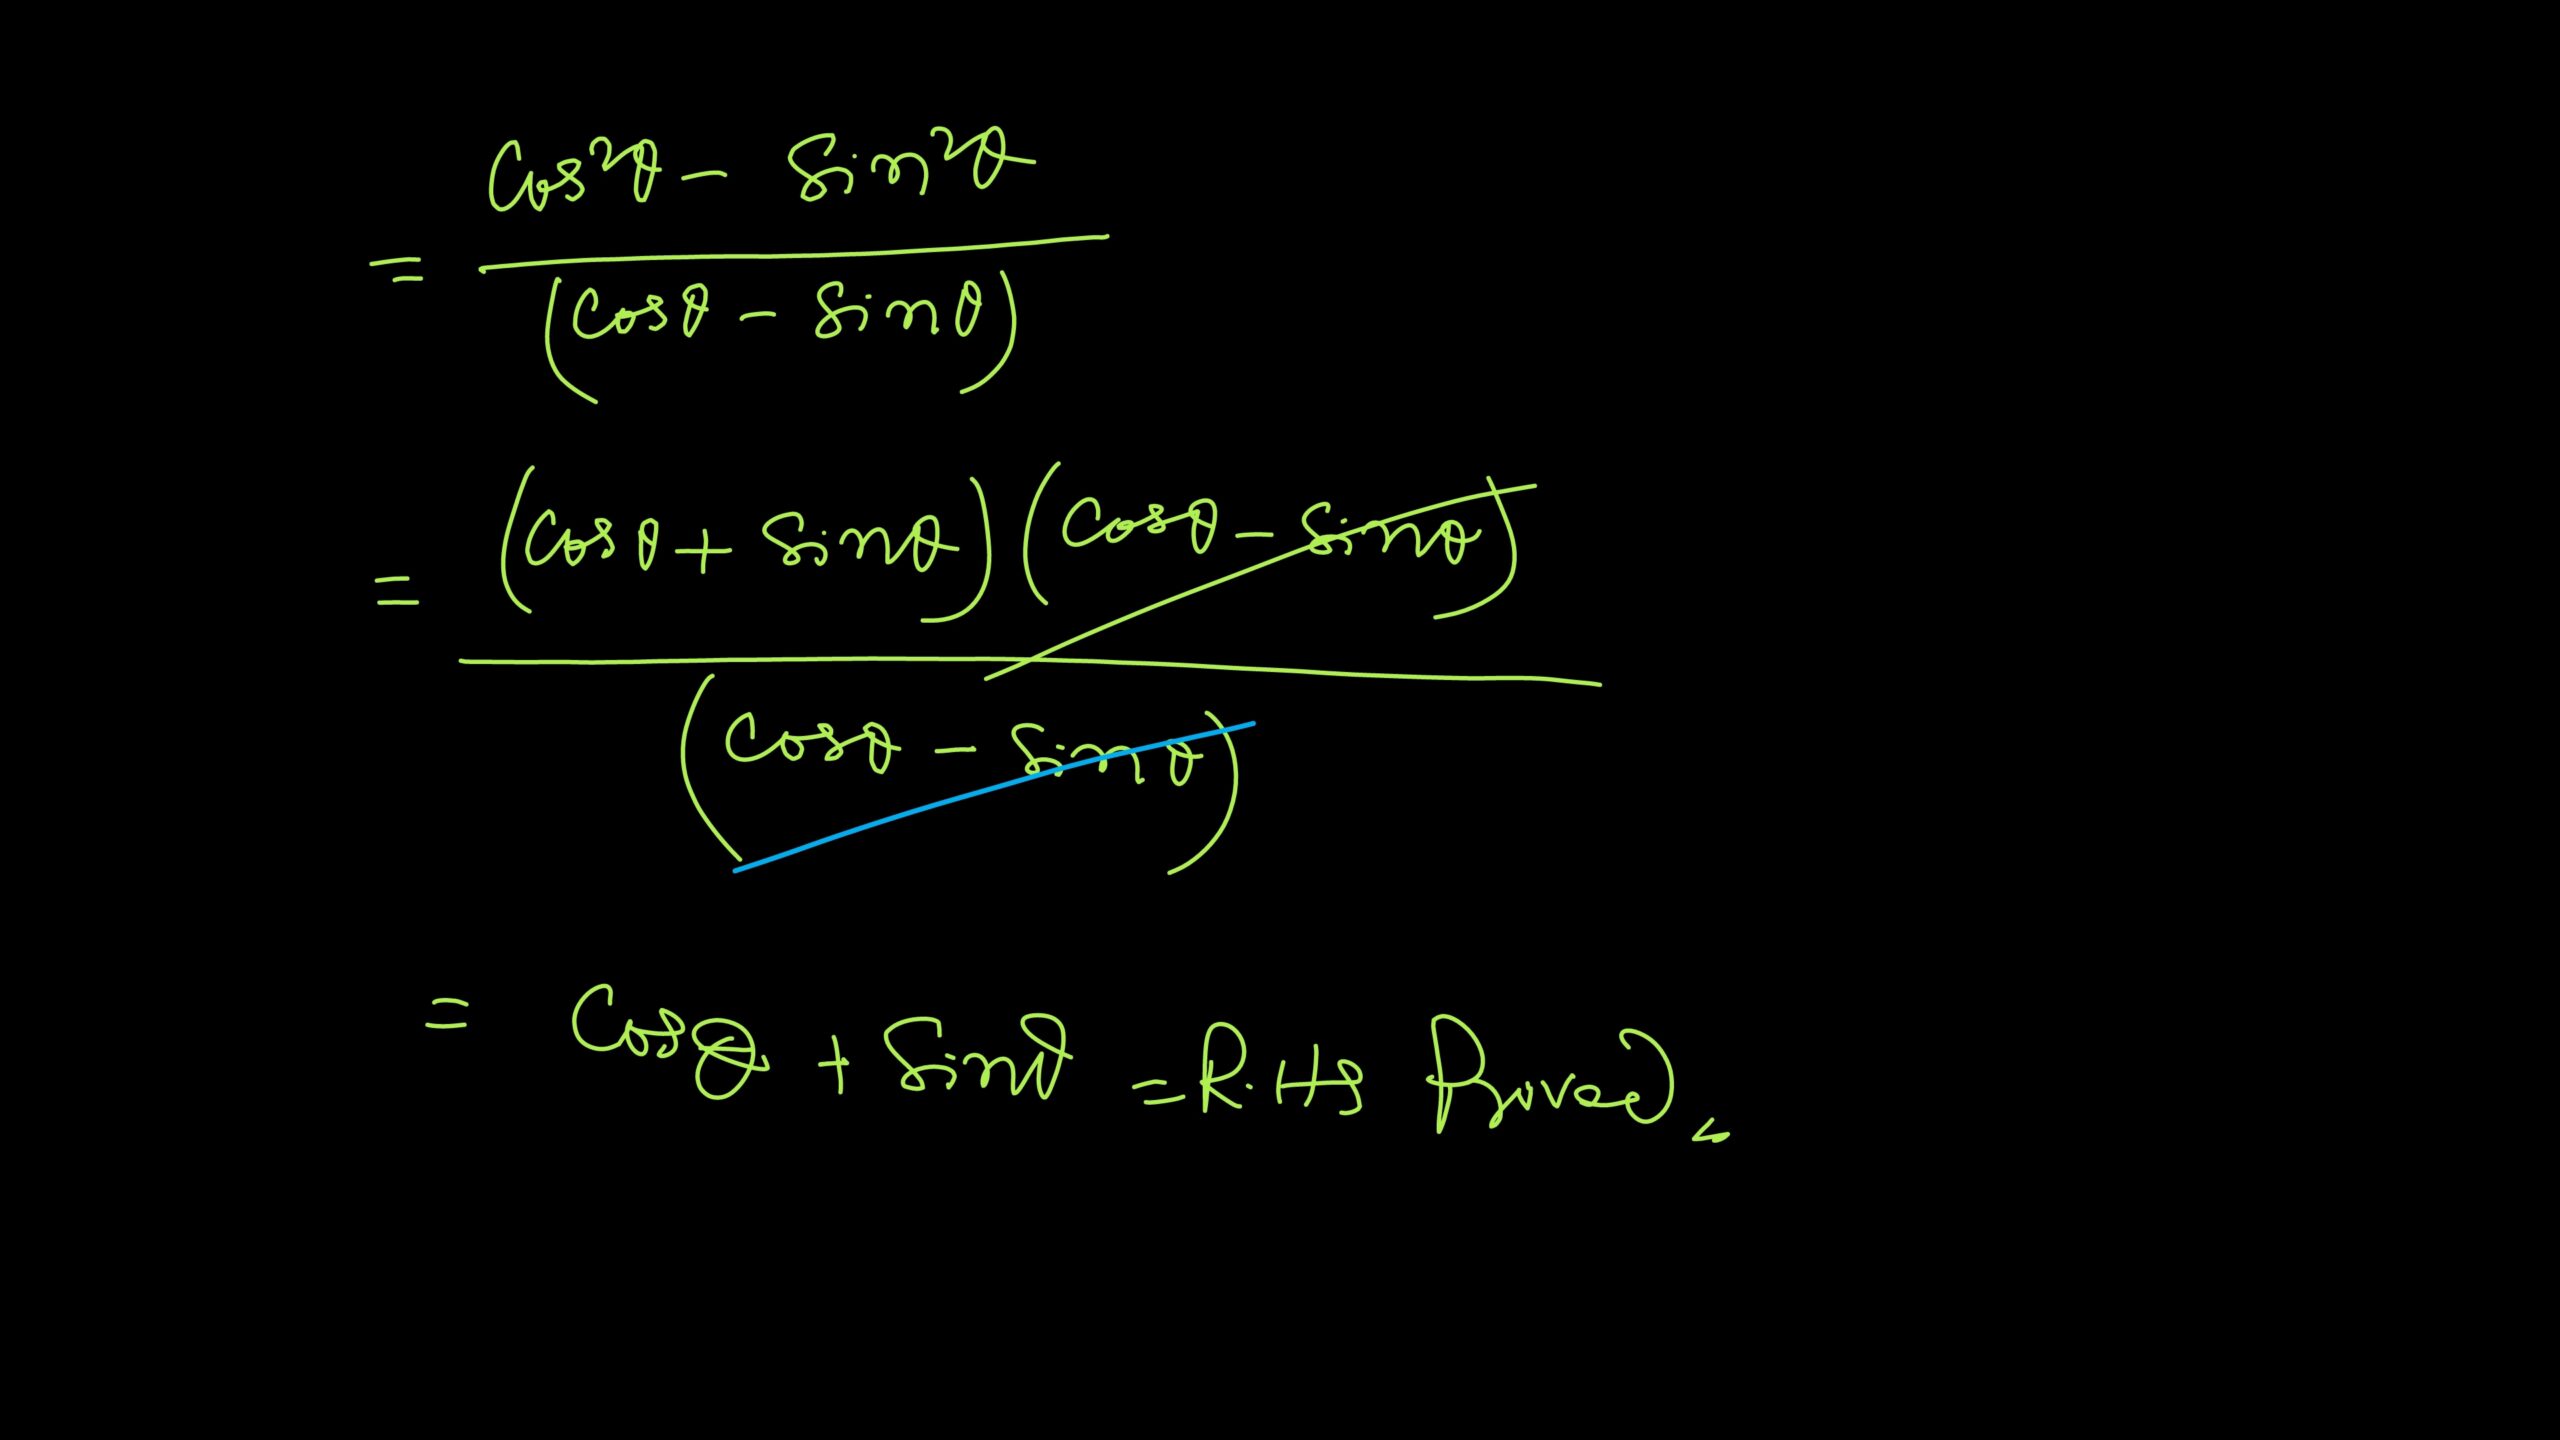 = Cos²θ - Sin²θ
(Cosθ - Sinθ)
= (Cosθ + Sinθ) (Cosθ - Sinθ)
(Cosθ - Sinθ)
= Cosθ + Sinθ = R.HS Proved